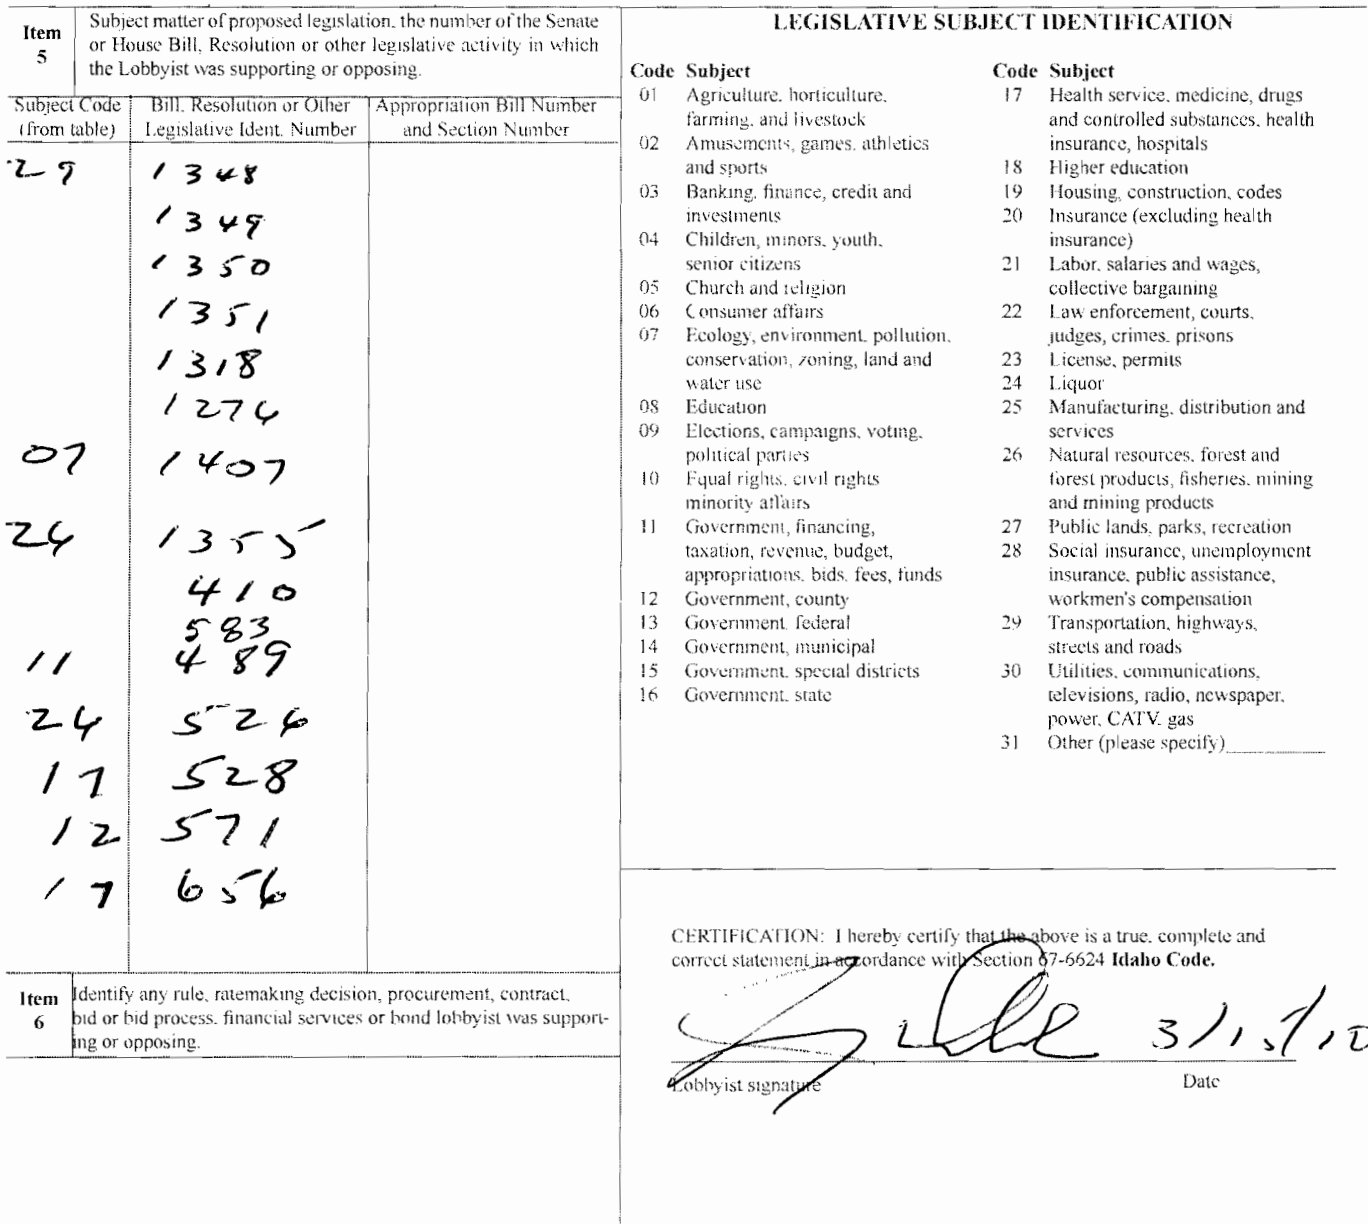 Item 5
Subject matter of proposed legislation, the number of the Senate
or House Bill, Resolution or other legislative activity in which
the Lobbyist was supporting or opposing.
Subject Code (from table)
Bill, Resolution or Other Legislative Ident. Number
Appropriation Bill Number and Section Number
29 1348
1349
1350
1351
1318
1276
07 1407
26 1355
410
583
11 489
26 526
17 528
12 571
17 656
Item 6
Identify any rule, ratemaking decision, procurement, contract,
bid or bid process, financial services or bond lobbyist was support-
ing or opposing.
LEGISLATIVE SUBJECT IDENTIFICATION
Code Subject
01 Agriculture, horticulture,
farming, and livestock
02 Amusements, games, athletics
and sports
03 Banking, finance, credit and
investments
04 Children, minors, youth,
senior citizens
05 Church and religion
06 Consumer affairs
07 Ecology, environment, pollution,
conservation, zoning, land and
water use
08 Education
09 Elections, campaigns, voting,
political parties
10 Equal rights, civil rights
minority affairs
11 Government, financing,
taxation, revenue, budget,
appropriations, bids, fees, funds
12 Government, county
13 Government, federal
14 Government, municipal
15 Government, special districts
16 Government, state
Code Subject
17 Health service, medicine, drugs
and controlled substances, health
insurance, hospitals
18 Higher education
19 Housing, construction, codes
20 Insurance (excluding health
insurance)
21 Labor, salaries and wages,
collective bargaining
22 Law enforcement, courts,
judges, crimes, prisons
23 License, permits
24 Liquor
25 Manufacturing, distribution and
services
26 Natural resources, forest and
forest products, fisheries, mining
and mining products
27 Public lands, parks, recreation
28 Social insurance, unemployment
insurance, public assistance,
workmen's compensation
29 Transportation, highways,
streets and roads
30 Utilities, communications,
televisions, radio, newspaper,
power, CATV, gas
31 Other (please specify)
CERTIFICATION: I hereby certify that the above is a true, complete and
correct statement in accordance with Section 67-6624 Idaho Code.
3/15/10
Lobbyist signature Date